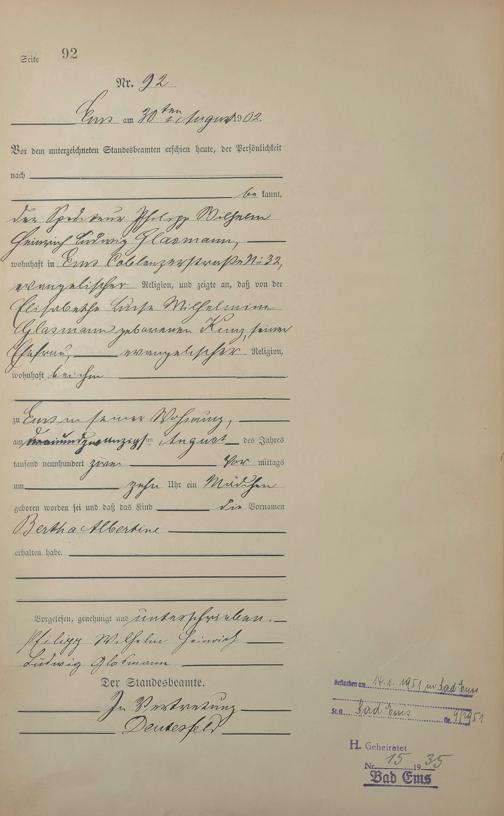 Seite 92
Nr. 92
Ems am 30ten August 1902.
Vor dem unterzeichneten Standesbeamten erschien heute, der Persönlichkeit
nach
be kannt,
der Spediteur Philipp Wilhelm
Heinrich Ludwig Glasmann,
wohnhaft in Ems Coblenzerstraße No 32,
evangelischer Religion, und zeigte an, daß von der
Elisabethe Luise Wilhelmine
Glasmann geborenen Kunz, seiner
Ehefrau, evangelischer Religion,
wohnhaft bei ihm
zu Ems in seiner Wohnung,
am ten August des Jahres
tausend neunhundert zwei Vor mittags
um zehn Uhr ein Mädchen
geboren worden sei und daß das Kind die Vornamen
Bertha Albertine
erhalten habe.
Vorgelesen, genehmigt und unterschrieben.
Philipp Wilhelm Heinrich
Ludwig Glasmann
Der Standesbeamte.
In Vertretung
Gestorben am 14.1.1951 in Bad Ems
St.A. Bad Ems Nr. 9/1951
H. Geheiratet
Nr. 15 1935
Bad Ems